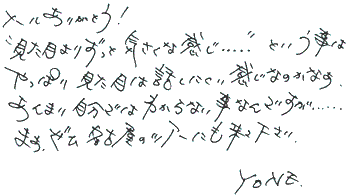 メールありがとう!
"見た目よりずっと気さくな感じ……" という事は
やっぱり見た目は話しにくい感じなのかなぁ。
あんまり自分ではわからない事なんですが……
まぁ、ぜひ名古屋のツアーにも来て下さい。
YONE.